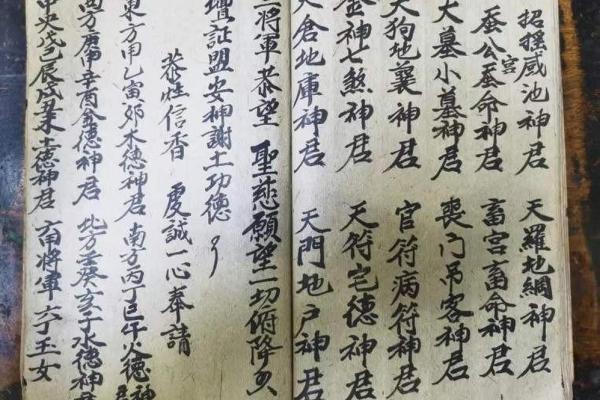 招摇威池神君 天羅地網神君
蚕公蚕宫命神君 畜宫畜命神君
大墓小墓神君 喪门吊客神君
天狗地神君 官符病符神君
金神七煞神君 天符宅德神君
天倉地庫神君 天門地户神君
三將軍恭望 聖慈願望一切俯降
壇証盟安神謝土功德
恭性信香 虔誠一心奉請
東方甲乙寅夘木德神君 南方丙丁巳午火德神君
西方庚申辛酉金德神君 北方壬癸亥子水德神君
中央戊己辰戌丑未土德神君 六甲將軍六丁玉女